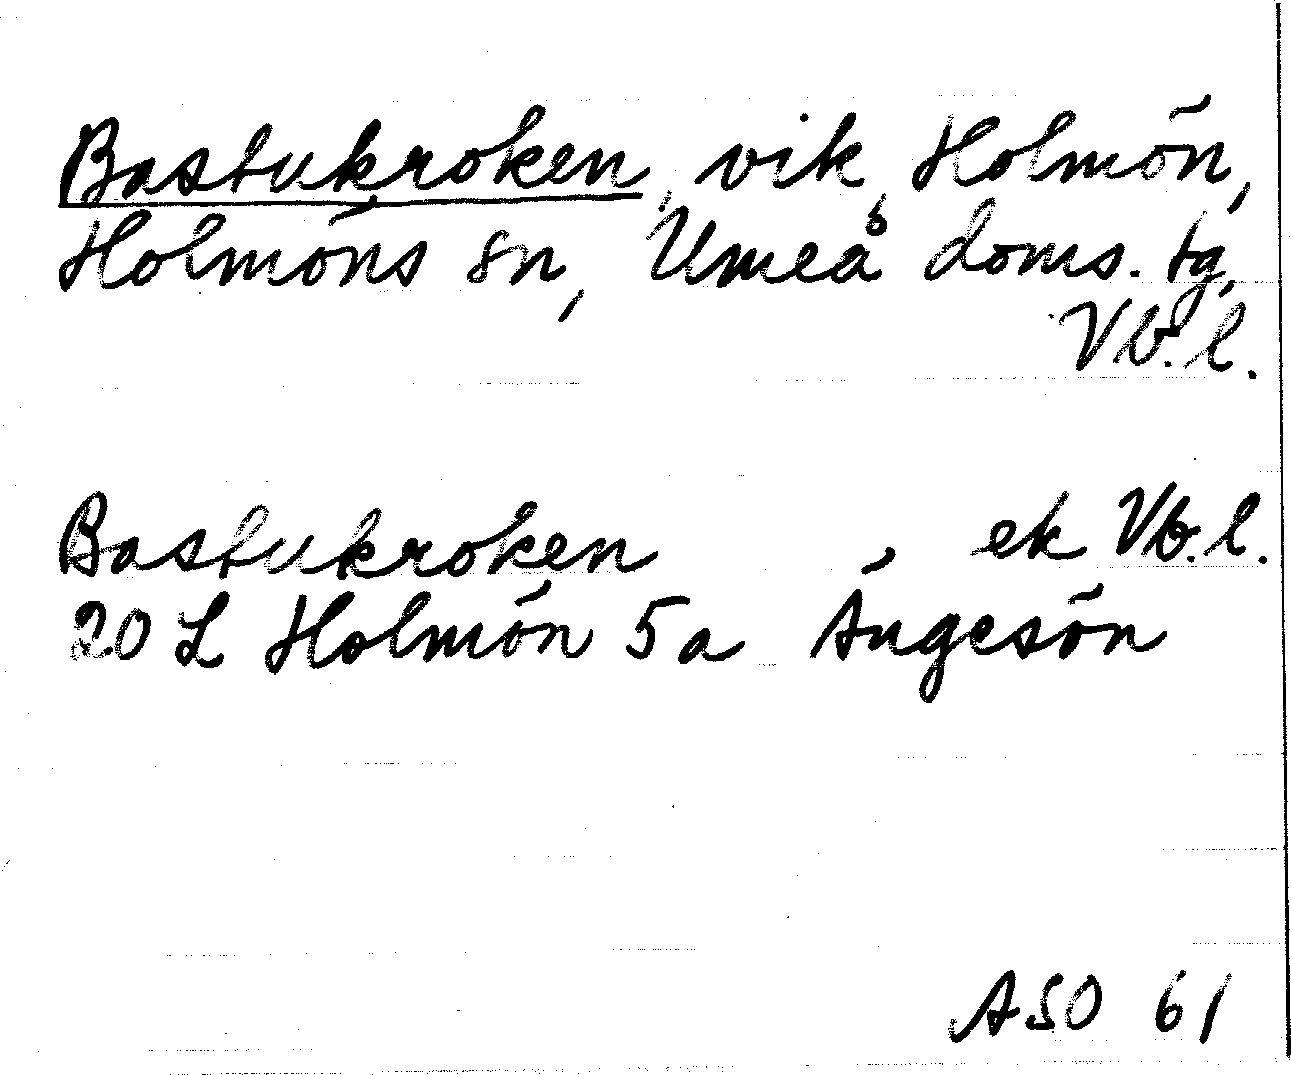 Bastukroken, vik, Holmön,
Holmöns sn, Umeå doms. tg,
Vb.l.
Bastukroken ek Vb.l.
20 L Holmön 5a Ängesön
ASO 61